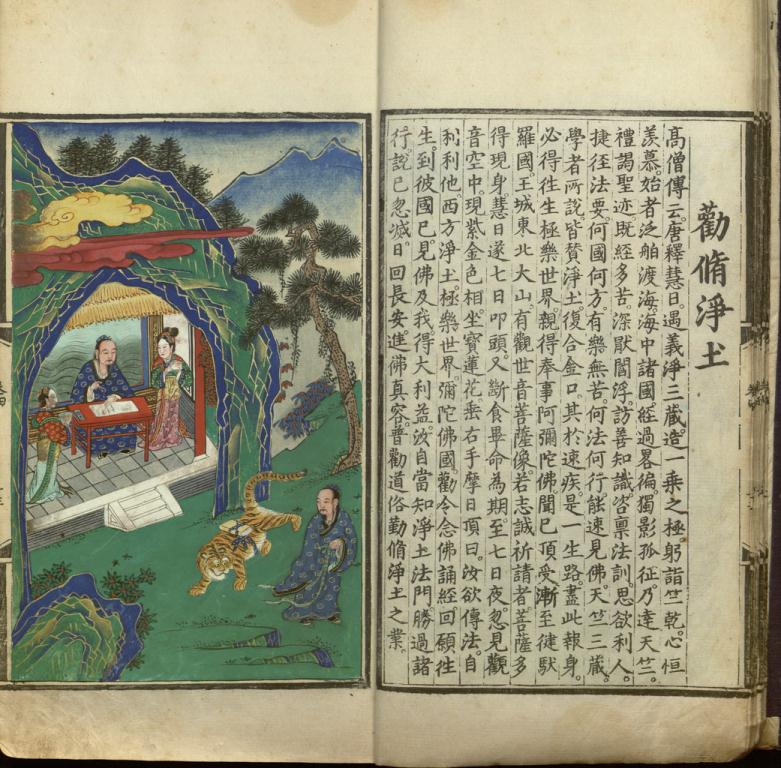 勸脩淨土
高僧傳云。唐釋慧日。遇義淨三藏。造一乘之極。躬詣竺乾。心恒
羨慕。始者泛舶渡海。海中諸國。經過畧徧。獨影孤征。乃達天竺。
禮謁聖迹。既經多苦。深厭閻浮。訪善知識。咨稟法訓。思欲利人。
捷徑法要。何國何方。有樂無苦。何法何行。能速見佛。天竺三藏。
學者所說。皆贊淨土。復合金口。其於速疾。是一生路。盡此報身。
必得徃生極樂世界。親得奉事阿彌陀佛。聞已頂受。漸至徤馱
羅國。王城東北大山。有觀世音菩薩像。若志誠祈請者。菩薩多
得現身。慧日遂七日叩頭。又斷食畢命為期。至七日夜。忽見觀
音空中。現紫金色相。坐寶蓮花。垂右手摩日頂曰。汝欲傳法。自
利利他。西方淨土。極樂世界。彌陀佛國。勸令念佛誦經。回願徃
生。到彼國已。見佛及我。得大利益。汝自當知。淨土法門。勝過諸
行。說已忽滅。日回長安。進佛真容。普勸道俗。勤脩淨土之業。